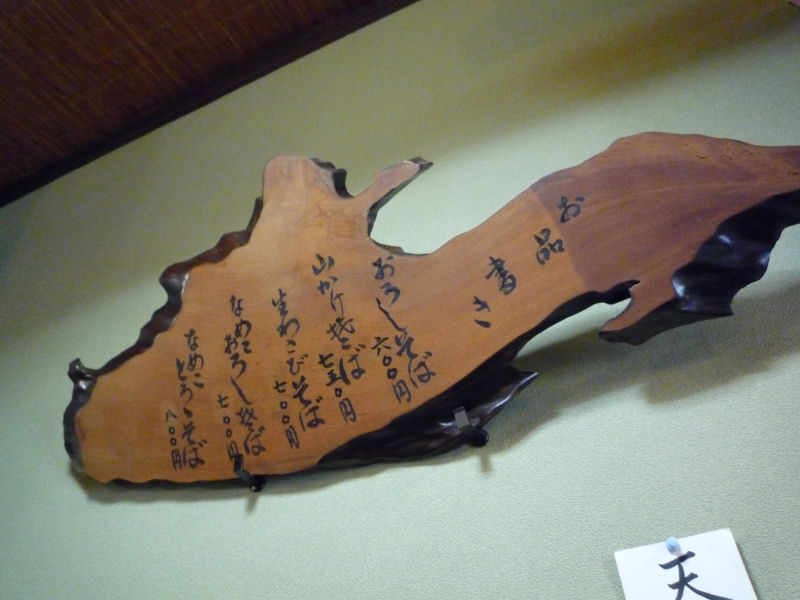 お品書き
おろしそば
六〇〇円
山かけそば
七五〇円
生わさびそば
七〇〇円
なめこおろしそば
七〇〇円
なめことろろそば
八〇〇円
天